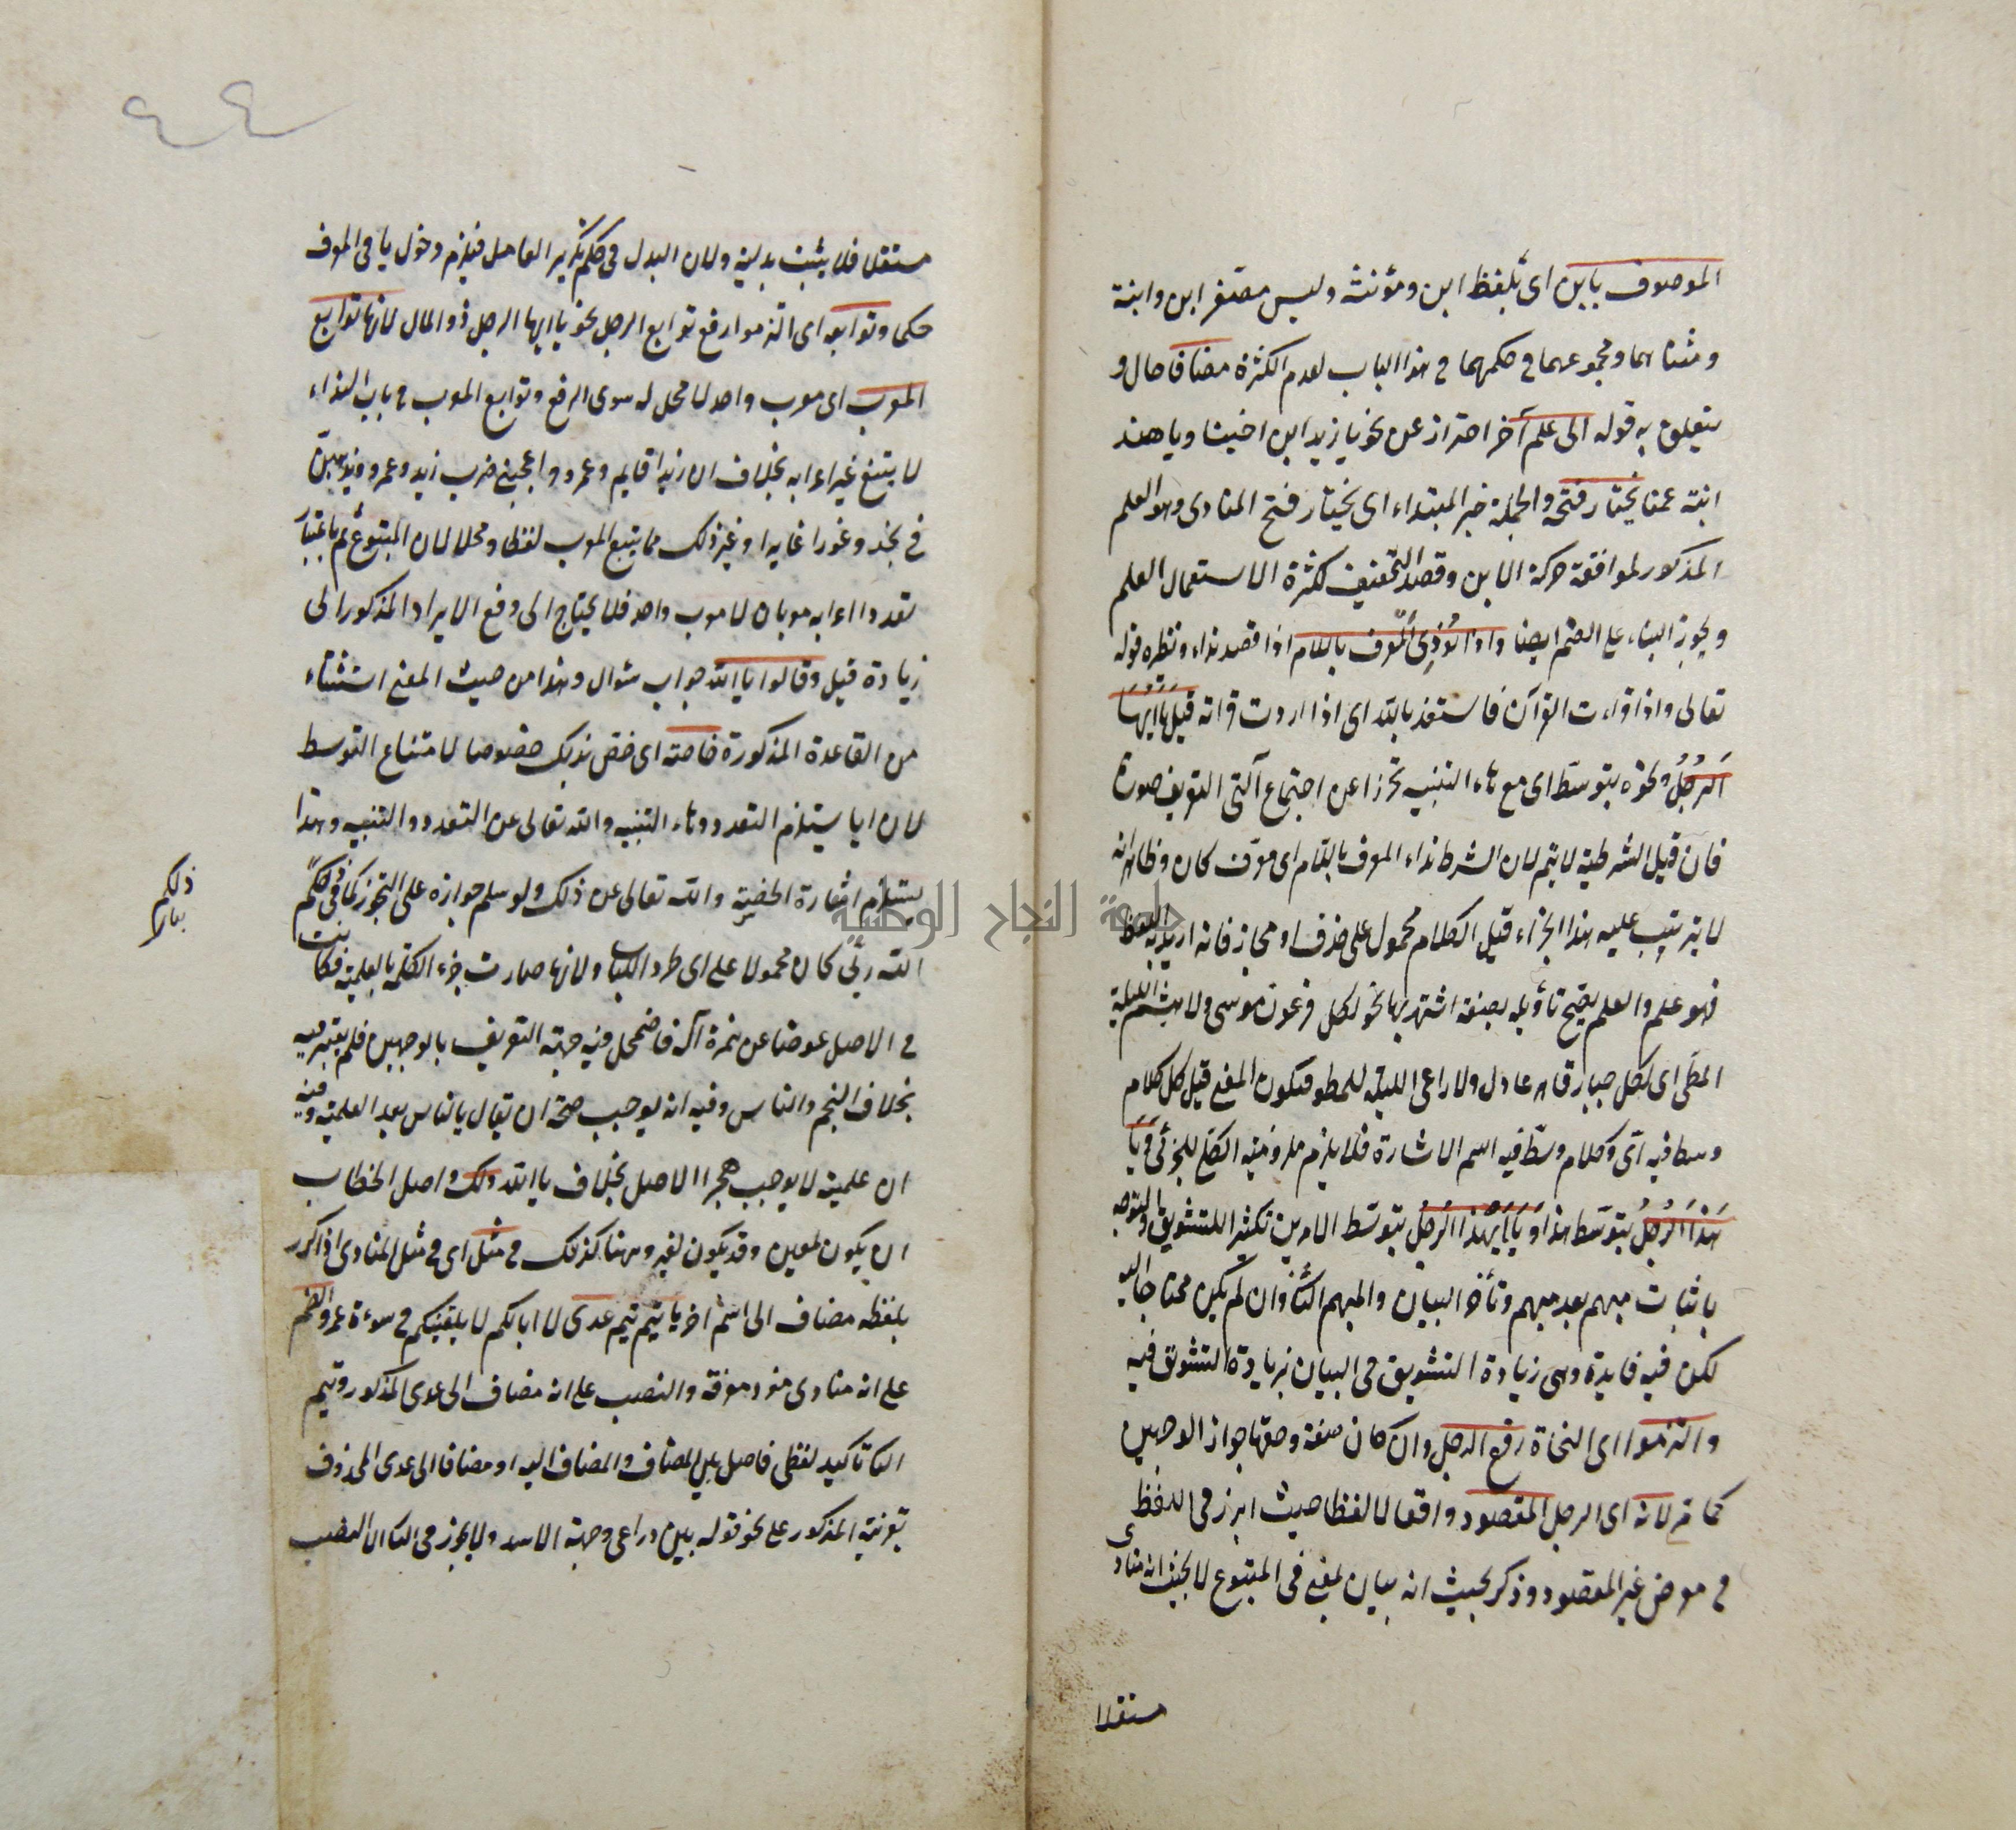 الموصوف بابن اى بلفظ ابن ومؤنثه وليس مصغر ابن وابنة
ومثناهما ومجموعهما فى حكمهما فى هذا الباب لعدم الكثرة مضافا حال و
يتعلق به قوله الى علم آخر احتراز عن نحو يا زيد ابن اخينا ويا هند
ابنة عمنا يختار فتحه والجملة خبر المبتداء اى يختار فتح المنادى وهو العلم
المذكور لموافقة حركة الابن وقصد التخفيف لكثرة الاستعمال العلم
ويجوز البناء على الضم ايضا واذا نُودِىَ المعرف باللام اذا قصد نداء ونظيره قوله
تعالى واذا قراءت القرآن فاستعذ بالله اى اذا اردت قراته قيل يا ايها
الرجل ونحوه بتوسط اى مع هاء التنبيه تحرزا عن اجتماع آلتى التعريف صورة
فان قيل الشرطية لا يتم لان الشرط نداء المعرف باللام اى معرف كان وظاهر انه
لا يترتب عليه هذا الجزاء قيل الكلام محمول على حذف او مجاز فانه اريد به اللفظ
فهو علم والعلم يصح تأويله بصفة اشتهر بها نحو لكل فرعون موسى ولا هيثم الليلة
المطى اى لكل جبار قاهر عادل ولا راعى الليلة للمطو فيكون المعنى قيل كل كلام
وسط فيه اى وكلام وسط فيه اسم الاشارة فلا يلزم ملزومية الكلى للجزئى ويا
هذا الرجل بتوسط هذا ويا ايهذا الرجل بتوسط الامرين تكثيرا للتشويق والتوجه
باثبات مبهم بعد مبهم وتأخر البيان والمبهم الثانى وان لم يكن محتاجا اليه
لكن فيه فايدة وهى زيادة التشويق فى البيان بزيادة التشويق فيه
والتزموا اى النحاة رفع الرجل وان كان صفة وحقها جواز الوجهين
كما مر لانه اى الرجل المقصود واقعا لا لفظا حيث ابرز فى اللفظ
فى معرض غير المقصود وذكر بحيث انه بيان لمعنى فى المتبوع لا بحيث انه منادى
مستقلا
مستقلا فلا يثبت بدلية ولان البدل فى حكم تكرير العامل فيلزم دخول يا فى المعرف
حكما وتوابعه اى التزموا رفع توابع الرجل نحو يا ايها الرجل ذو المال لانها توابع
المعرب اى معرب واحد لا محل له سوى الرفع وتوابع المعرب فى باب النداء
لا يتبع غير اعرابه بخلاف ان زيدا قايم وعمرو واعجبنى ضرب زيد وعمرو
فى نجد وغورا غايرا وغير ذلك مما يتبع المعرب لفظا ومحلا لان المتبوع ثم باعتبار
تعدد اعرابه معربان لا معرب واحد فلا يحتاج الى دفع الايراد المذكور الى
زيادة قيل وقالوا يا الله جواب سؤال وهذا من حيث المعنى استثناء
من القاعدة المذكورة خاصة اى خص بذلك خصوصا لامتناع التوسط
لان ايا يستلزم التعدد وهاء التنبيه والله تعالى عن التعدد والتنبيه وهذا
يستلزم اشارة الحضية والله تعالى عن ذلك ولو سلم جوازه على التجوز كما فى
ذلكم
الله ربى كان محمولا على اى طرد الباب ولانها صارت جزء الكلمة بالعلمية فكانت
فى الاصل عوضا عن همزة آله فاضمحل فيه جهة التعريف بالوجهين فلم يعتبر فيه
بخلاف النجم والناس وفيه انه يوجب صحة ان يقال يا لناس بعد العلمية وفيه
ان علمية لا يوجب هجر الاصل بخلاف يا الله ولك واصل الخطاب
ان يكون لمعين وقد يكون لغيره وههنا كذلك فى مثل اى فى مثل المنادى اذا كرر
بلفظه مضاف الى اسم اخر يا تيم تيم عدى لا ابالكم لا يلقينكم فى سوءة عمر والضم
على انه منادى مفرد معرفة والنصب على انه مضاف الى عدى المذكور وتيم
الثانى تاكيد لفظى فاصل بين المضاف والمضاف اليه او مضاف الى عدى المحذوف
بقرينة المذكور على نحو قوله بين ذراعى وجبهة الاسد ولا يجوز فى الثانى الا النصب
٤٤
جامعة النجاح الوطنية